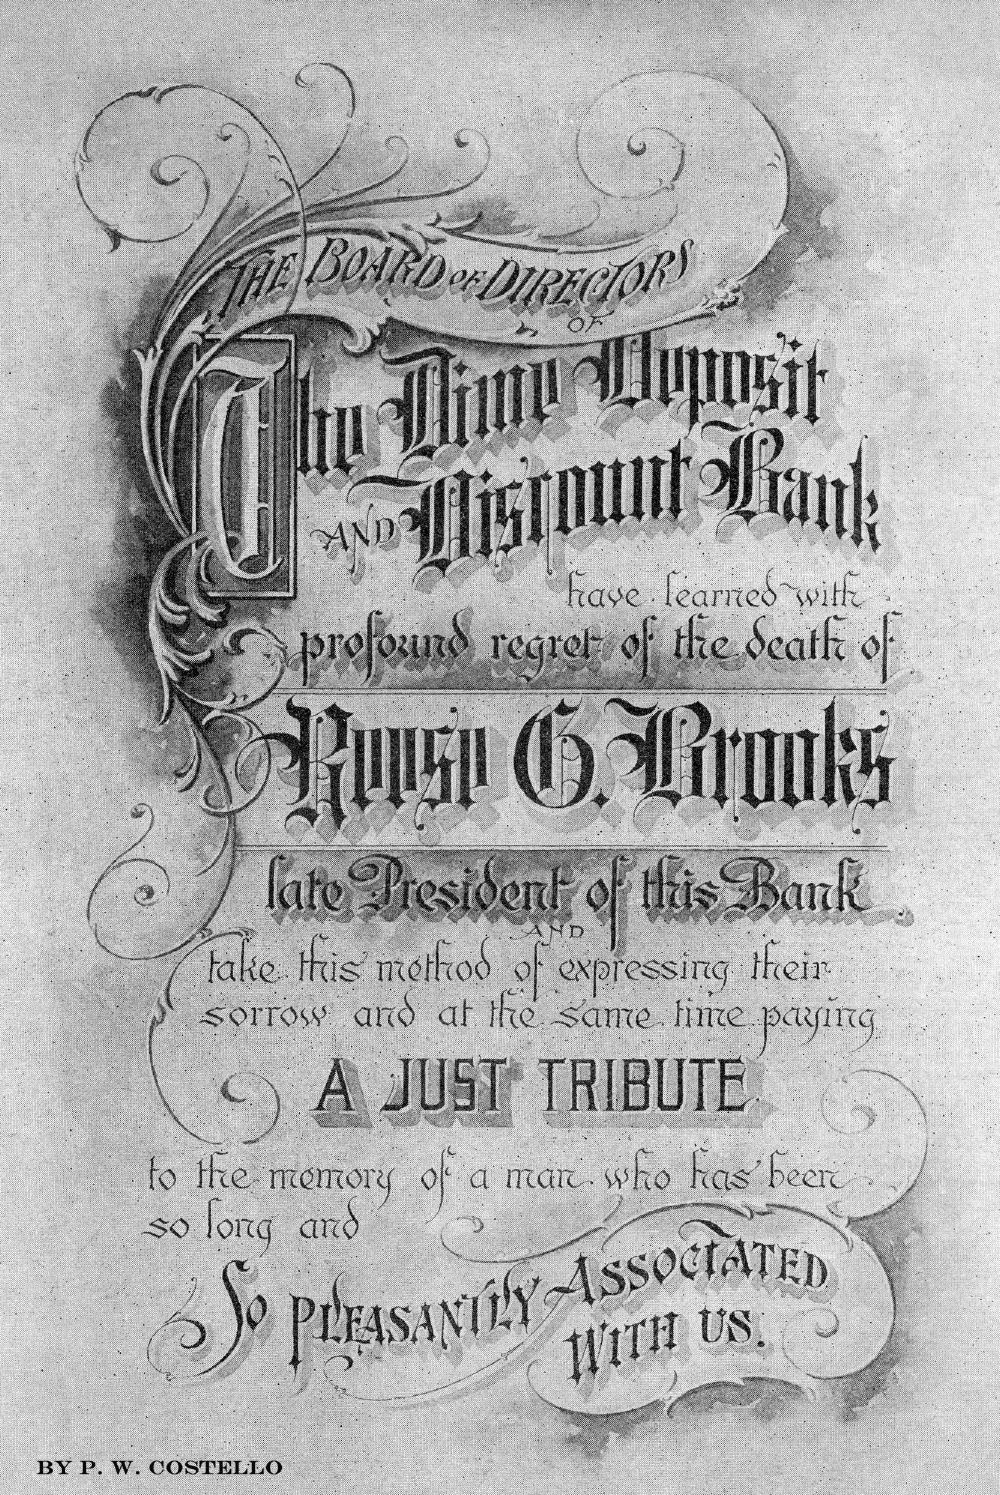 THE BOARD OF DIRECTORS
OF
The Dime Deposit
AND Discount Bank
have learned with
profound regret of the death of
Reese G. Brooks
late President of this Bank
AND
take this method of expressing their
sorrow and at the same time paying
A JUST TRIBUTE
to the memory of a man who has been
so long and
So PLEASANTLY ASSOCIATED
WITH US.
BY P. W. COSTELLO